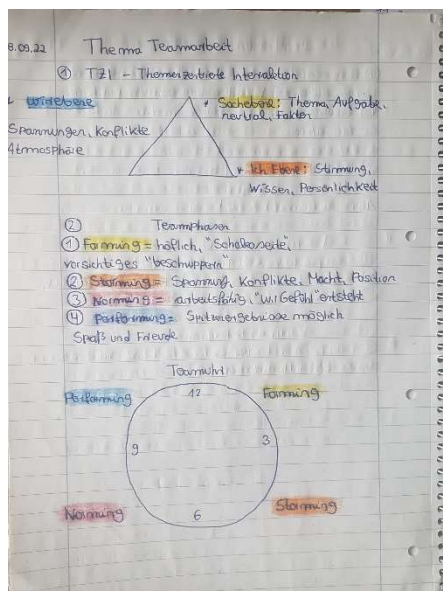 8.09.22 Thema Teamarbeit
① TZI - Themenzentrierte Interaktion
Wirebene
Sachebene: Thema, Aufgabe,
neutral, Fakten
Spannungen, Konflikte
Atmosphäre
Ich Ebene: Stimmung,
Wissen, Persönlichkeit
② Teamphasen
① Forming = höflich, "Schokoseite",
vorsichtiges "beschnuppern"
② Storming = Spannung, Konflikte, Macht, Position
③ Norming = arbeitsfähig, "Wir Gefühl" entsteht
④ Performing = Spitzenergebnisse möglich
Spaß und Freude
Teamuhr
Performing 12 Forming
9 3
Norming 6 Storming